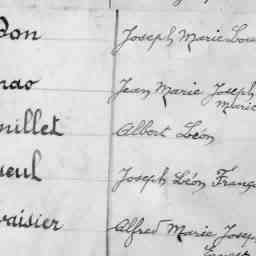 Don Joseph Marie Lou
Jean Marie Joseph
Marie
millet Albert Léon
eul Joseph Léon Franço
vaisier Alfred Marie Josep
Ernest